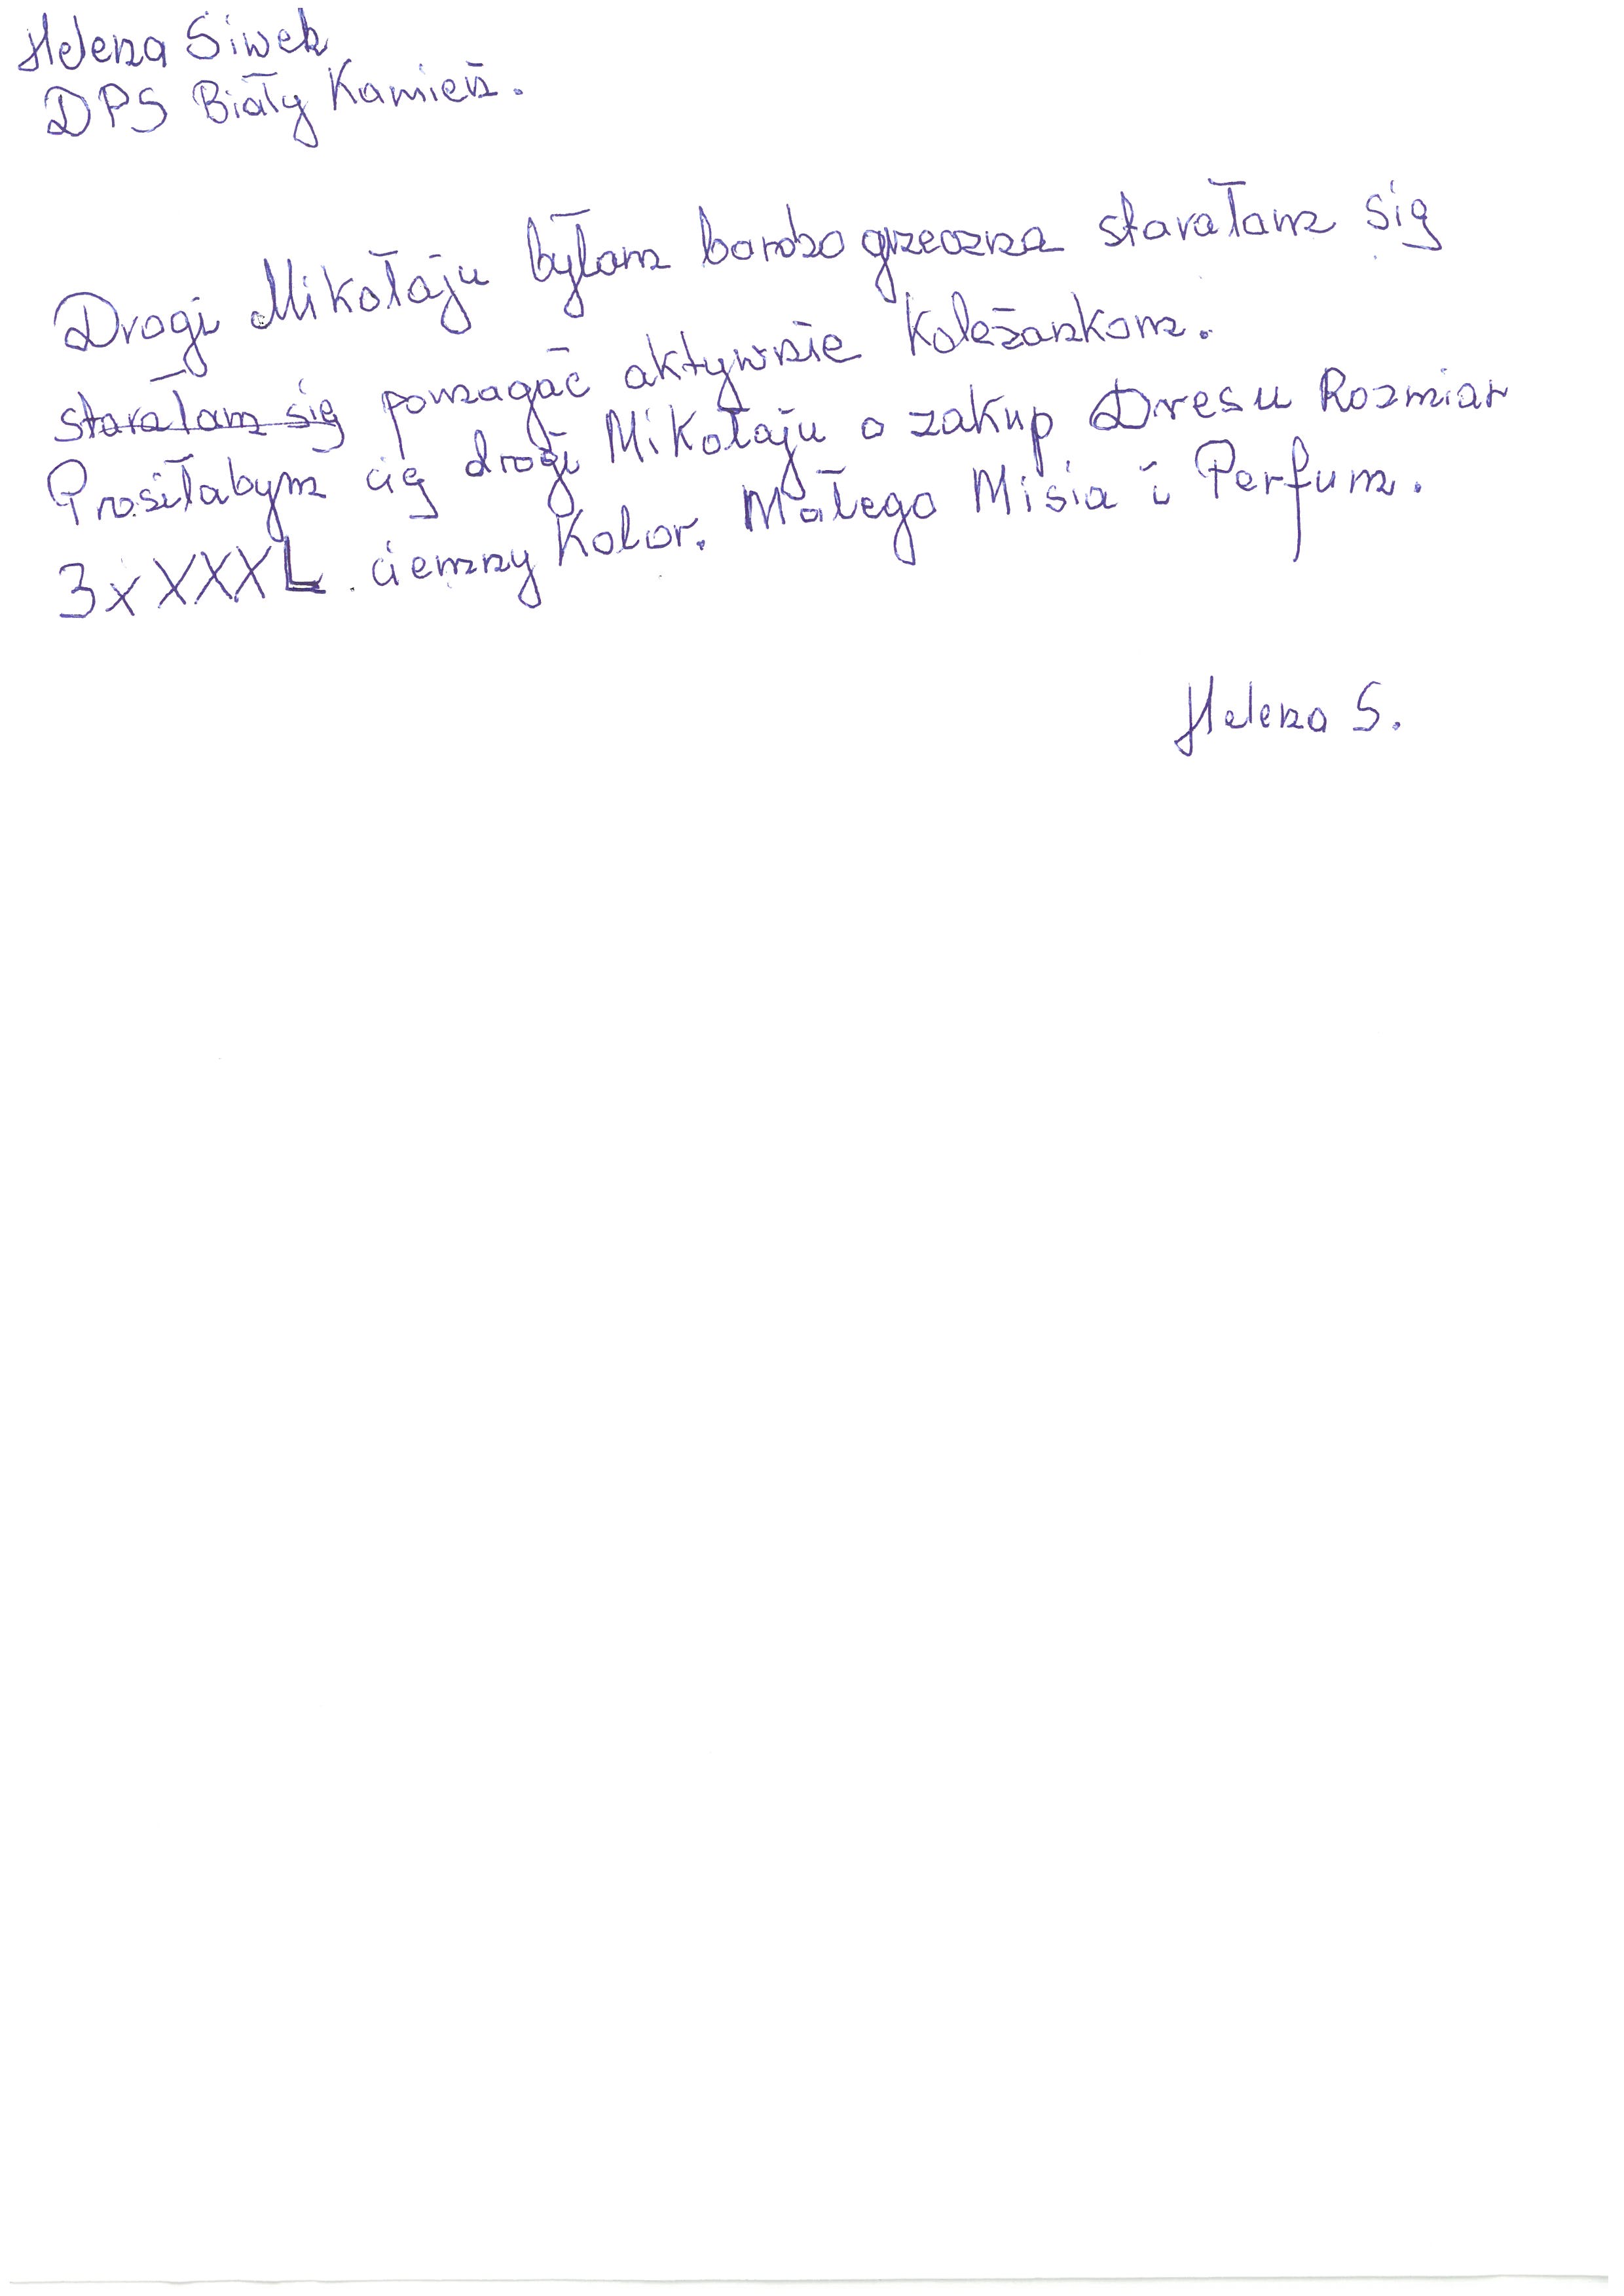 Helena Siwek
DPS Biały Kamień.
Drogi Mikołaju byłam bardzo grzeczna starałam się
starałam się pomagać aktywnie Koleżankom.
Prosiłabym cię drogi Mikołaju o zakup Dresu Rozmiar
3x XXXL. ciemny Kolor. Małego Misia i Perfum.
Helena S.